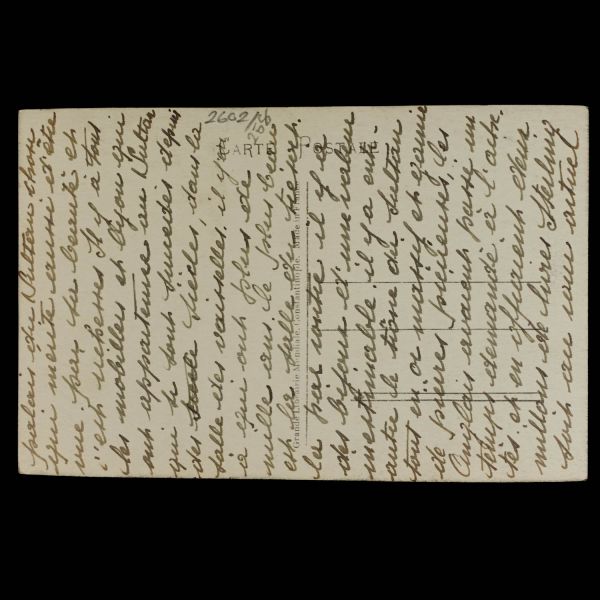 2602/
CARTE POSTALE
Grande Librairie Mondiale, Constantinople. Made in France
palais du Sultan chose
qui merite aussi d'être
vue par sa beauté et
c'est superbes Il y a tous
les mobiliers et bijoux qui
ont appartenue au Sultan
qui se sont succédés depuis
des siècles, dans la
salle des vaisselles, il y en
a qui ont plus de
mille ans, le plus beau
est la salle des trésors.
les par contre il y a
des bijoux d'une valeur
inestimable, il y a entr-
autre le trône du Sultan
tout en or massif et garnie
de pierres précieuses, les
Anglais avait parait un
temps demandé à l'acheter
et en offraient cinq
millions de livres Sterling
soit au cour actuel